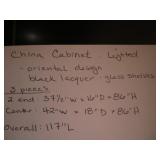 China Cabinet . Lighted
- oriental design
black lacquer . glass shelves
3 pieces
2 end 37½"W x 16"D x 86"H
Center: 42"W x 18"D x 86"H
Overall: 117"L